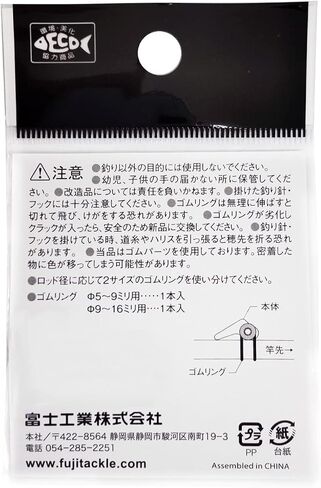 環境・美化
DECO
協力商品
注意
●釣り以外の目的には使用しないでください。
●幼児、子供の手の届かない所に保管してくだ
さい。●改造品については責任を負いかねます。●掛けた釣り針・
フックには十分注意してください。●ゴムリングは無理に伸ばすと
切れて飛び、けがをする恐れがあります。●ゴムリングが劣化し
クラックが入ったら、安全のため新品に交換してください。●釣り針・
フックを掛けている時、道糸やハリスを引っ張ると穂先を折る恐れ
があります。●当品はゴムパーツを使用しております。密着した
物に色が移ってしまう可能性があります。
●ロッド径に応じて2サイズのゴムリングを使い分けてください。
●ゴムリング Φ5〜9ミリ用‥‥1本入
Φ9〜16ミリ用‥‥1本入
本体
竿先
ゴムリング
富士工業株式会社
本社／〒422-8564 静岡県静岡市駿河区南町19-3
電話 054-285-2251
www.fujitackle.com
プラ
PP
紙
台紙
Assembled in CHINA